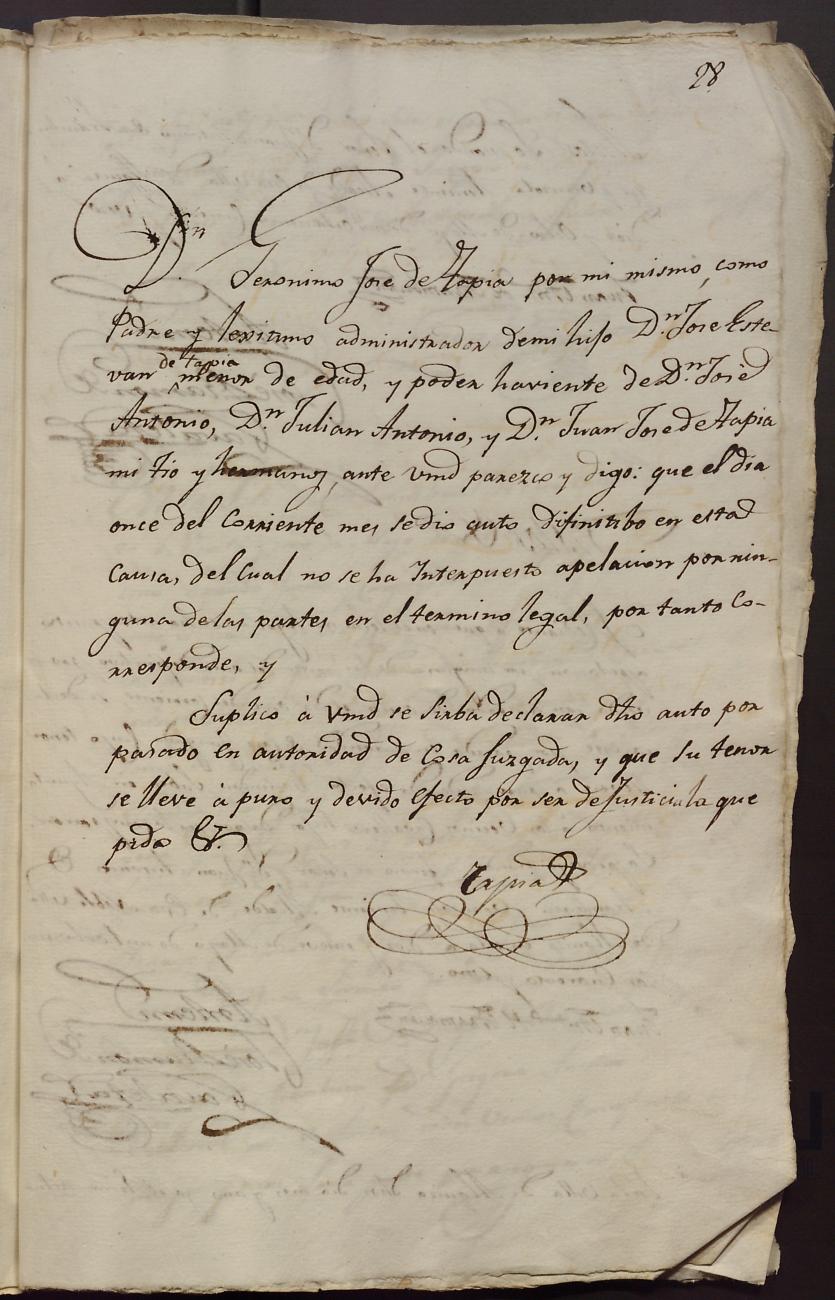 28
D.n Geronimo Jose de Tapia por mi mismo, como
Padre y lexitimo administrador de mi hijo D.n Jose Este-
de tapia
van menor de edad, y poder haviente de D.n Jose
Antonio, D.n Julian Antonio, y D.n Juan Jose de Tapia
mi tio y hermanos, ante vmd parezco y digo: que el dia
once del Corriente mes se dio auto difinitibo en esta
Causa, del Cual no se ha Interpuesto apelacion por nin-
guna de las partes en el termino legal, por tanto Co-
rresponde, y
Suplico à Vmd se sirba declarar dho auto por
pasado en autoridad de Cosa Juzgada, y que su tenor
se lleve à puro y devido efecto por ser de Justicia la que
pido &.
Tapia